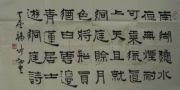 南湖秋水
夜無煙耐
可乘流直
上天且就
洞庭賒月
色將船買
酒白雲邊
青蓮居士
遊洞庭詩